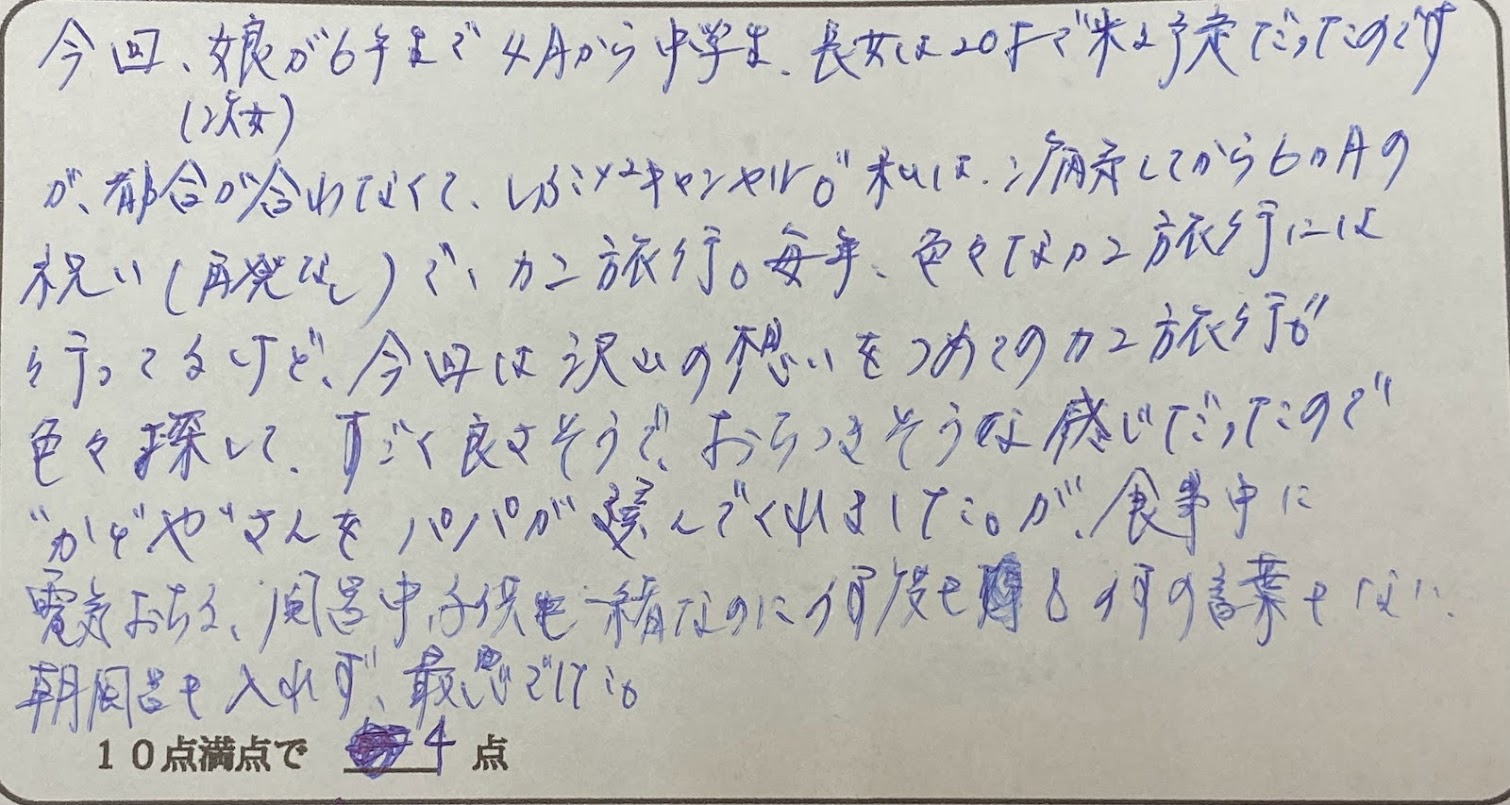 今回、娘が6年生で4月から中学生、長女は20才で来る予定だったのです
(次女)
が、都合が合わなくて、しぶしぶキャンセル。私は、病完してから6カ月の
祝い(再発なし)で、カニ旅行。毎年、色々なカニ旅行には
行ってるけど、今回は沢山の想いをつめてのカニ旅行。
色々探して、すごく良さそうで、おちつきそうな感じだったので
"かぞや"さんをパパが選んでくれました。が、食事中に
電気おちる、風呂中子供も一緒なのに何度も 何の言葉もない、
朝風呂も入れず、最悪でした。
10点満点で 4 点